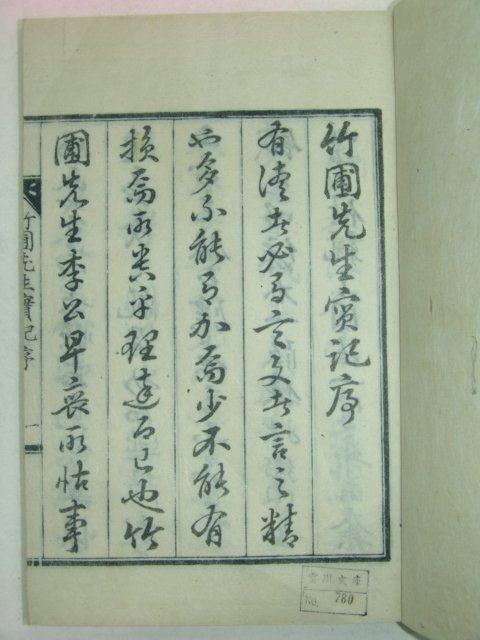 竹圃先生實記序
有德者必有言文者言之精
也多不能有加焉少不能有
損焉所貴乎理達而已也竹
圃先生李公早喪所怙事
竹圃先生實記序
一
雲川文庫
No. 780